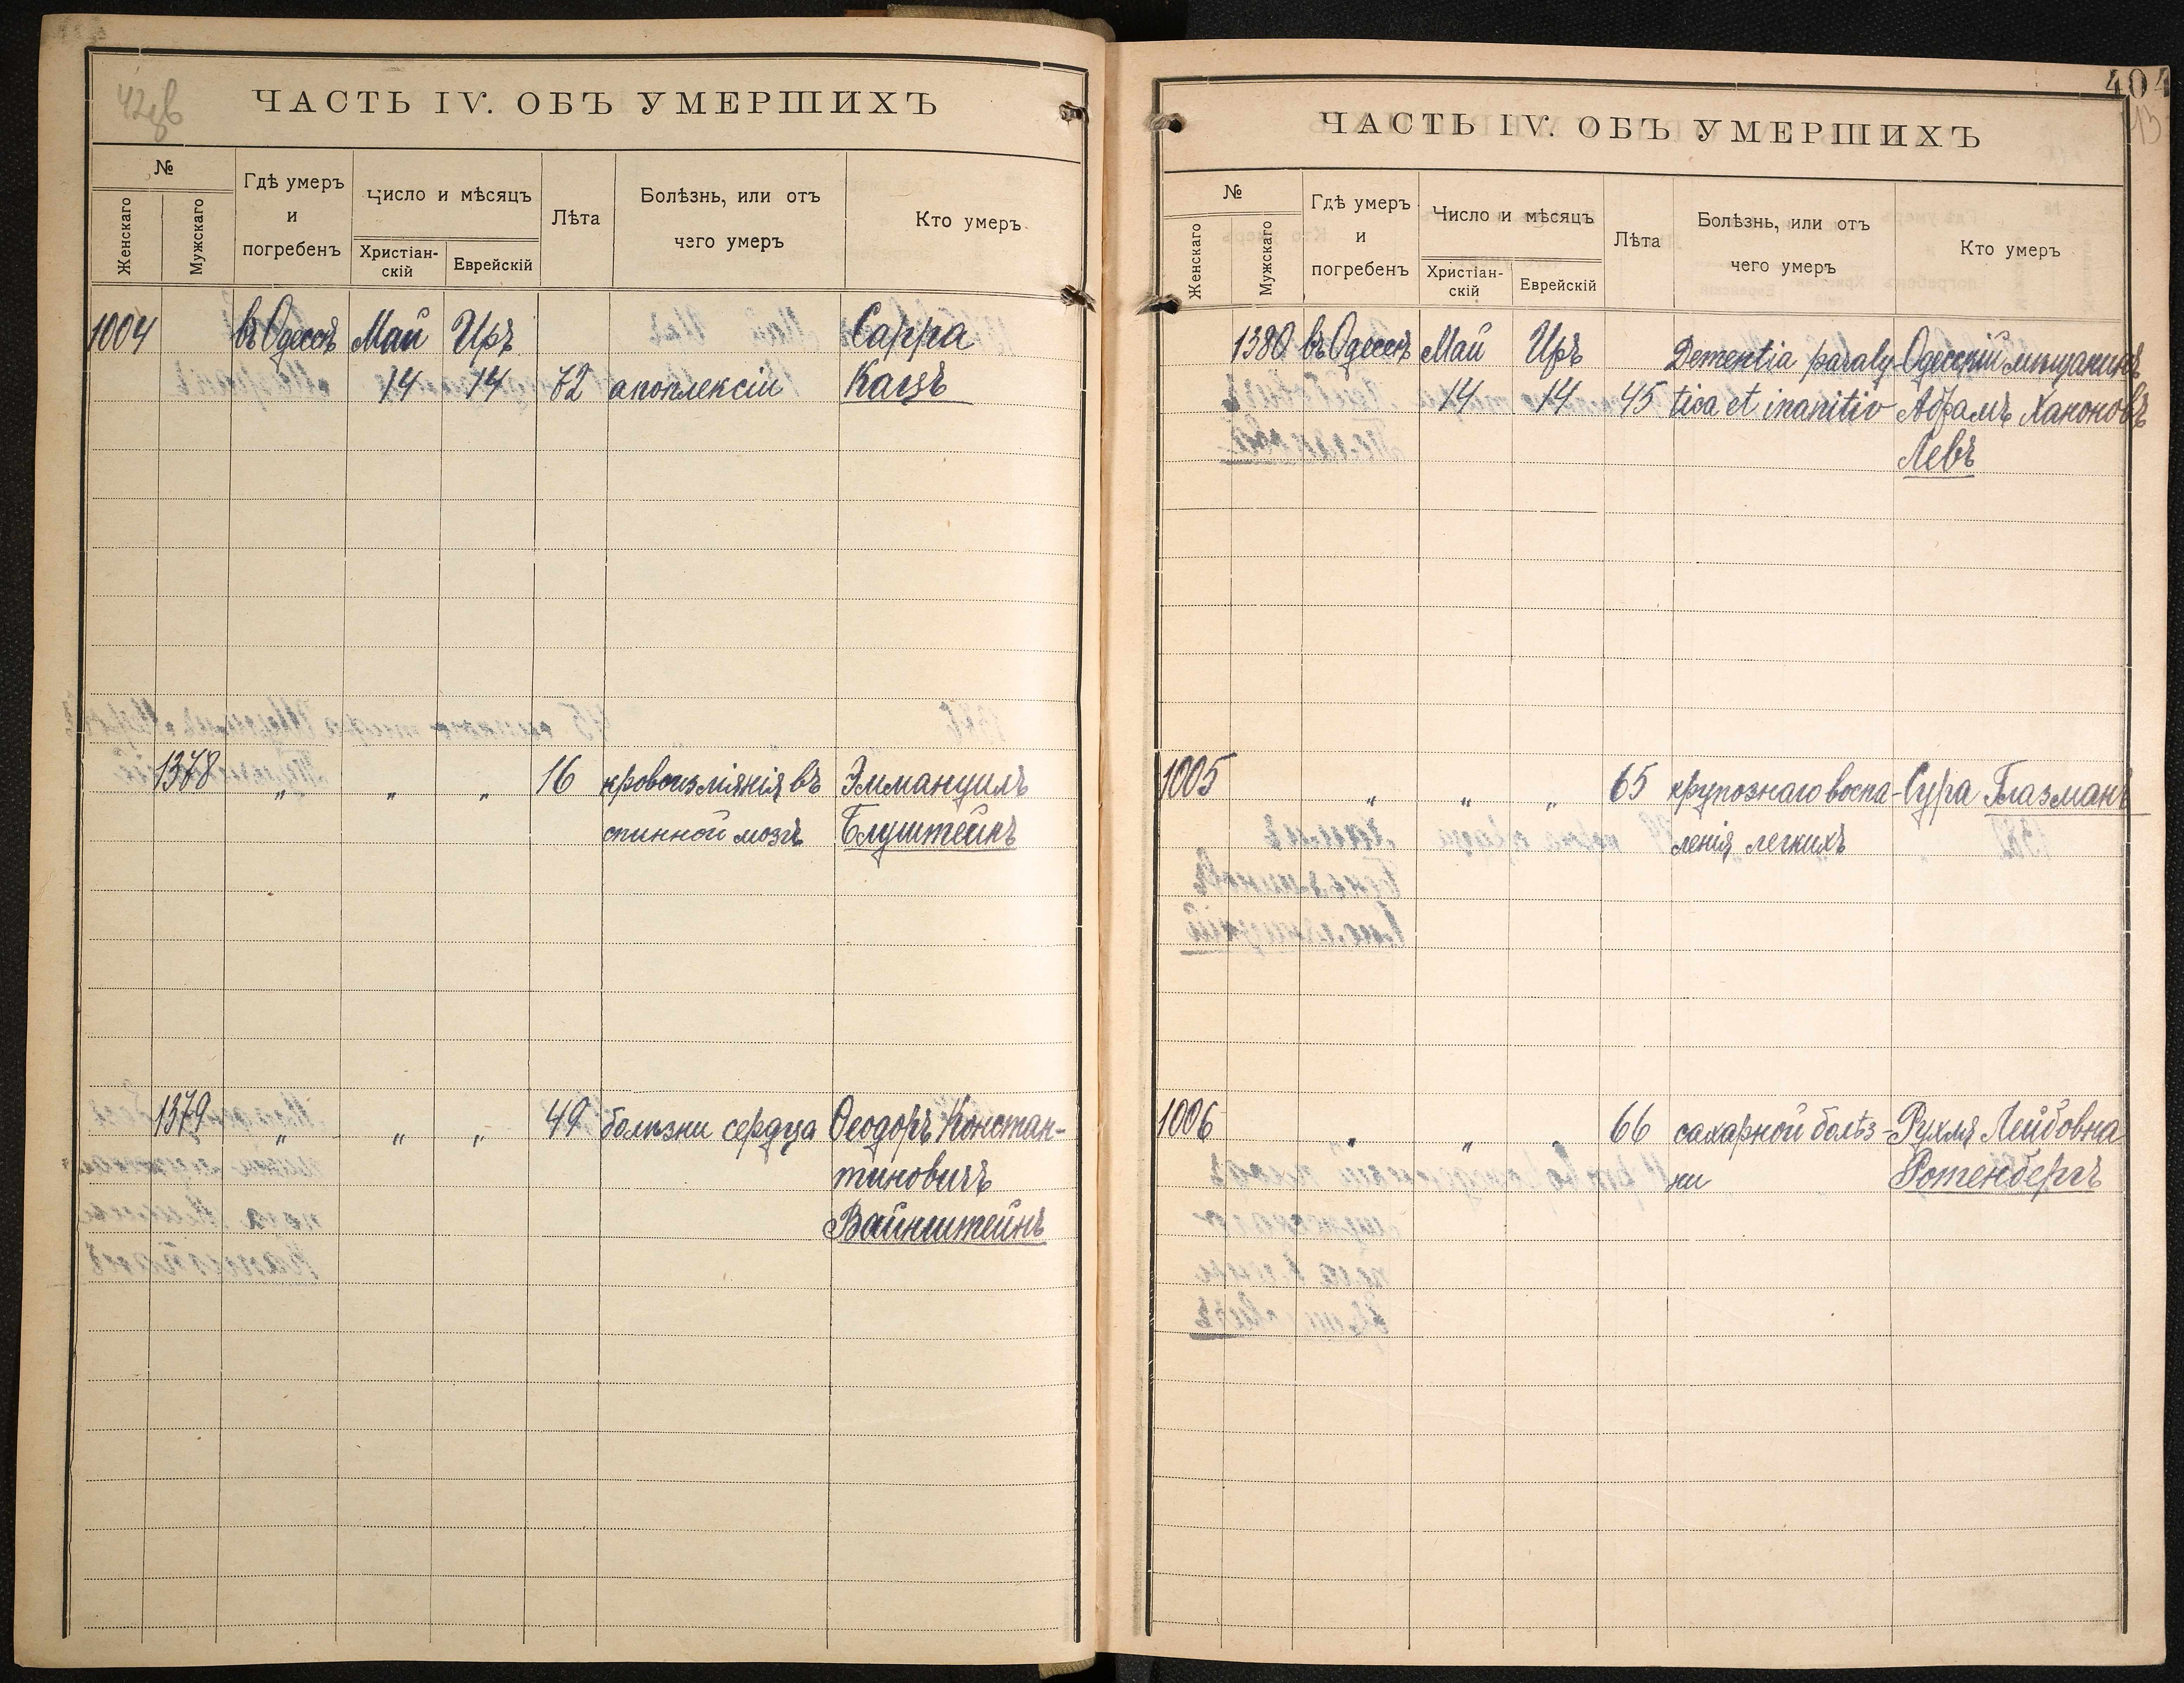 42об
ЧАСТЬ IV. ОБЪ УМЕРШИХЪ
№
Женскаго
Мужскаго
Гдѣ умеръ
и
погребенъ
Число и мѣсяцъ
Христіан-
скій
Еврейскій
Лѣта
Болѣзнь, или отъ
чего умеръ
Кто умеръ
1004 въ Одессѣ Май Иръ Сарра
14 14 72 апоплексіи Кацъ
1378 " " " 16 кровоизліянія въ Эммануилъ
спинной мозгъ Блуштейнъ
1379 " " " 49 болѣзни сердца Ѳеодоръ Констан-
тиновичъ
Вайнштейнъ
404
43
ЧАСТЬ IV. ОБЪ УМЕРШИХЪ
№
Женскаго
Мужскаго
Гдѣ умеръ
и
погребенъ
Число и мѣсяцъ
Христіан-
скій
Еврейскій
Лѣта
Болѣзнь, или отъ
чего умеръ
Кто умеръ
1380 въ Одессѣ Май Иръ Dementia paraly- Одесскій мѣщанинъ
14 14 45 tica et inanitio Абрамъ Хаконовъ
Левъ
1005 " " " 65 крупознаго воспа- Сура Глазманъ
ленія легкихъ
1006 " " " 66 сахарной болѣз- Рухля Лейбовна
ни Ротенбергъ